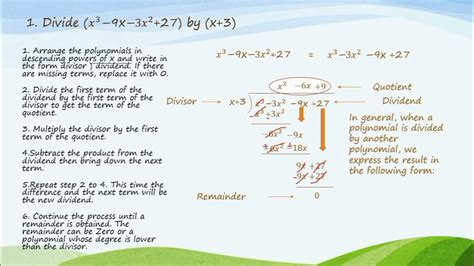 1. Divide (x³−9x−3x²+27) by (x+3)
1. Arrange the polynomials in
descending powers of x and write in
the form divisor ) dividend. If there
are missing terms, replace it with 0.
2. Divide the first term of the
dividend by the first term of the
divisor to get the term of the
quotient.
3. Multiply the divisor by the first
term of the quotient.
4.Subtract the product from the
dividend then bring down the next
term.
5.Repeat step 2 to 4. This time the
difference and the next term will be
the new dividend.
6. Continue the process until a
remainder is obtained. The
remainder can be Zero or a
polynomial whose degree is lower
than the divisor.
x³−9x−3x²+27 = x³−3x² −9x +27
x² −6x +9
Quotient
Divisor
x+3
x³−3x² −9x +27
Dividend
−6x² −9x
9x +27
0
Remainder
In general, when a
polynomial is divided
by another
polynomial, we
express the result in
the following form: